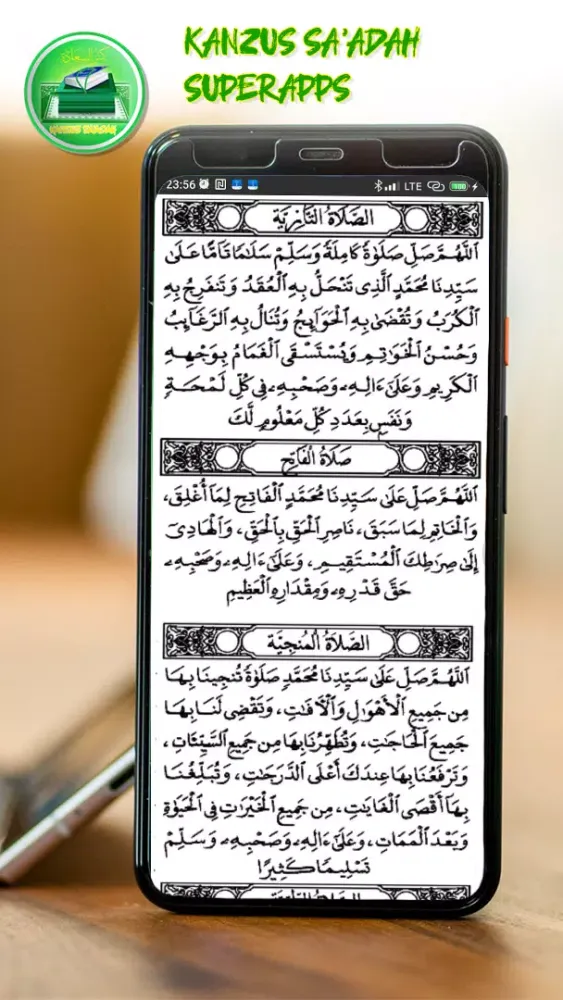 KANZUS SA'ADAH
SUPERAPPS
KANZUS SAADAH
23:56 LTE 100
الصَّلَاةُ التَّازِيَّة
اَللّٰهُمَّ صَلِّ صَلَوٰةً كَامِلَةً وَسَلِّمْ سَلَامًا تَامًّا عَلَىٰ
سَيِّدِنَا مُحَمَّدٍ الَّذِى تَنْحَلُّ بِهِ الْعُقَدُ وَتَنْفَرِجُ بِهِ
الْكُرَبُ وَتُقْضَىٰ بِهِ الْحَوَايِجُ وَتُنَالُ بِهِ الرَّغَايِبُ
وَحُسْنُ الْخَوَاتِمِ وَيُسْتَسْقَى الْغَمَامُ بِوَجْهِهِ
الْكَرِيمِ وَعَلَىٰ ءَالِهِ، وَصَحْبِهِ، فِى كُلِّ لَمْحَةٍ
وَنَفَسٍ بِعَدَدِ كُلِّ مَعْلُومٍ لَّكَ
صَلَاةُ الْفَاتِح
اَللّٰهُمَّ صَلِّ عَلَىٰ سَيِّدِنَا مُحَمَّدٍ الْفَاتِحِ لِمَا أُغْلِقَ،
وَالْخَاتِمِ لِمَا سَبَقَ، نَاصِرِ الْحَقِّ بِالْحَقِّ، وَالْهَادِىٓ
إِلَىٰ صِرَاطِكَ الْمُسْتَقِيمِ، وَعَلَىٰ ءَالِهِ، وَصَحْبِهِ،
حَقَّ قَدْرِهِ، وَمِقْدَارِهِ الْعَظِيمِ
الصَّلَاةُ الْمُنْجِيَّة
اَللّٰهُمَّ صَلِّ عَلَىٰ سَيِّدِنَا مُحَمَّدٍ صَلَوٰةً تُنْجِينَا بِهَا
مِن جَمِيعِ الْأَهْوَالِ وَالْآفَاتِ، وَتَقْضِى لَنَا بِهَا
جَمِيعَ الْحَاجَاتِ، وَتُطَهِّرُنَا بِهَا مِن جَمِيعِ السَّيِّئَاتِ،
وَتَرْفَعُنَا بِهَا عِندَكَ أَعْلَى الدَّرَجَاتِ، وَتُبَلِّغُنَا
بِهَآ أَقْصَى الْغَايَاتِ، مِن جَمِيعِ الْخَيْرَاتِ فِى الْحَيَوٰةِ
وَبَعْدَ الْمَمَاتِ، وَعَلَىٰ ءَالِهِ، وَصَحْبِهِ، وَسَلِّمْ
تَسْلِيمًا كَثِيرًا